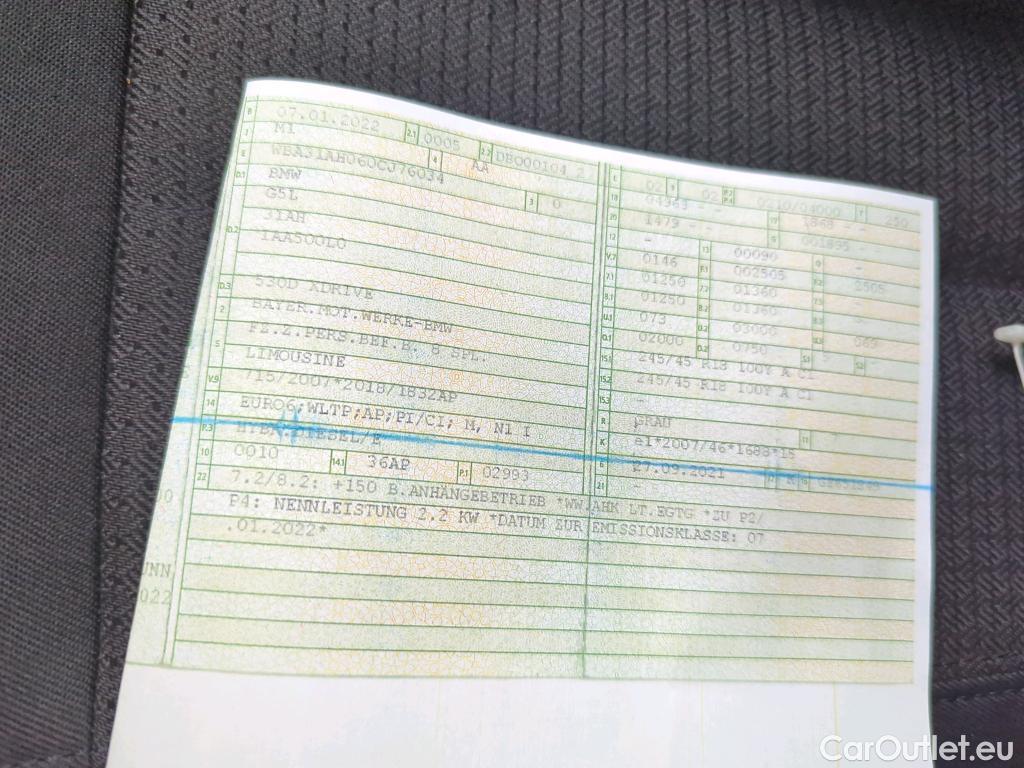 B 07.01.2022 2.1 0005 2.2 DBO00104 2
J M1 4 AA
E WBA31AH060CJ76034 3 0
D.1 BMW
G5L
D.2 31AH
1AA500L0
D.3 530D XDRIVE
2 BAYER.MOT.WERKE-BMW
5 FZ.Z.PERS.BEF.B. 8 SPL.
LIMOUSINE
V.9 715/2007*2018/1832AP
14 EURO6;WLTP;AP;PI/CI; M, N1 I
P.3 HYBR.DIESEL/E
10 0010 14.1 36AP P.1 02993
22 7.2/8.2: +150 B.ANHÄNGEBETRIEB *WW.AHK LT.EGTG *ZU P2/
P4: NENNLEISTUNG 2.2 KW *DATUM ZUR EMISSIONSKLASSE: 07
.01.2022*
L 02 9 02 P.2 P.4 0210/04000 T 250
18 1868 - -
20 1479 - - G 001895 -
12 - 13 00090 Q -
V.7 0146 F.1 002505 F.2 2505
7.1 01250 7.2 01360 7.3 -
8.1 01250 8.2 01360 8.3 -
U.1 073 U.2 03000 U.3
O.1 02000 O.2 0750 S.1 S.2 -
15.1 245/45 R18 100Y A C1
15.2 245/45 R18 100Y A C1
15.3 -
R GRAU 11
K e1*2007/46*1688*15
6 27.09.2021 17 K 16
21 -
UNN
022
CarOutlet.eu